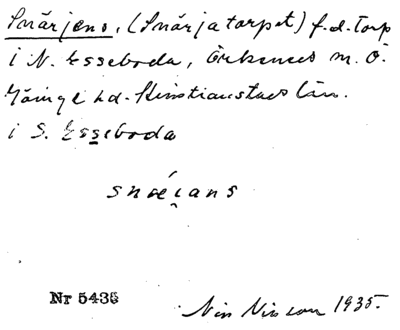 Snärjens, (Snärjatorpet) f.d. torp
i N. Esseboda, Örkeneds sn. Ö.
Göinge hd. Kristianstads län.
i S. Esseboda
snǽi̯ans
Nr 5435
Nils Nilsson 1935.